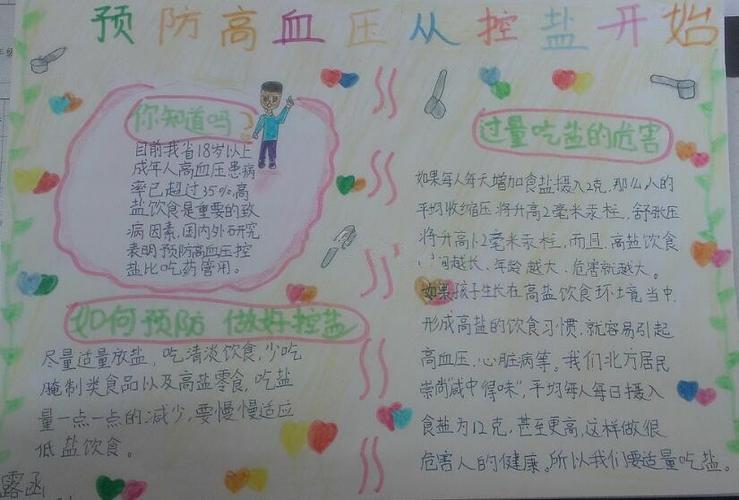 预防高血压从控盐开始
你知道吗?
目前我省18岁以上
成年人高血压患病
率已超过35%,高
盐饮食是重要的致
病因素,国内外研究
表明预防高血压控
盐比吃药管用。
如何预防 做好控盐
尽量适量放盐,吃清淡饮食,少吃
腌制类食品以及高盐零食,吃盐
量一点一点的减少,要慢慢适应
低盐饮食。
过量吃盐的危害
如果每人每天增加食盐摄入2克,那么人的
平均收缩压将升高2毫米汞柱,舒张压
将升高1.2毫米汞柱,而且,高盐饮食
间越长、年龄越大、危害就越大。
如果孩子生长在高盐饮食环境当中,
形成高盐的饮食习惯,就容易引起
高血压、心脏病等。我们北方居民
崇尚"咸中得味",平均每人每日摄入
食盐为12克,甚至更高,这样做很
危害人的健康。所以我们要适量吃盐。
露函